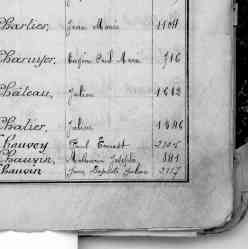 Charlier, Jean Marie 1104
Charuyer, Eugène Paul Marie 716
Château, Julien 1612
Chatier, Julien 1846
Chauvey Paul Ernest
Chauvin, Mathurin Joseph 881
Chauvin Jean Baptiste Julien 2117